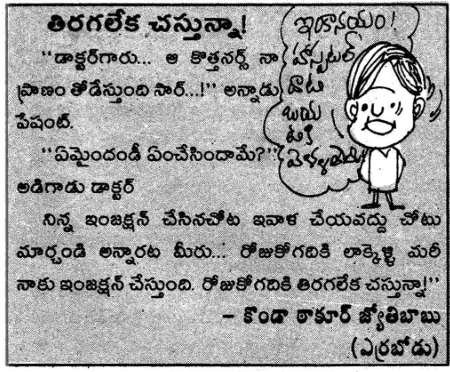 తిరగలేక చస్తున్నా!
"డాక్టర్‌గారు... ఆ కొత్తనర్స్ నా
ప్రాణం తోడేస్తుంది సార్...!" అన్నాడు
పేషంట్.
"ఏమైందండీ ఏంచేసిందామే?"
అడిగాడు డాక్టర్
నిన్న ఇంజక్షన్ చేసినచోట ఇవాళ చేయవద్దు చోటు
మార్చండి అన్నారట మీరు... రోజుకోగదికి లాక్కెళ్ళి మరీ
నాకు ఇంజక్షన్ చేస్తుంది. రోజుకోగదికి తిరగలేక చస్తున్నా!"
– కొండా ఠాకూర్ జ్యోతిబాబు
(ఎర్రబోడు)
ఇంకానయం!
హాస్పటల్
దాటి
బయ
టకి